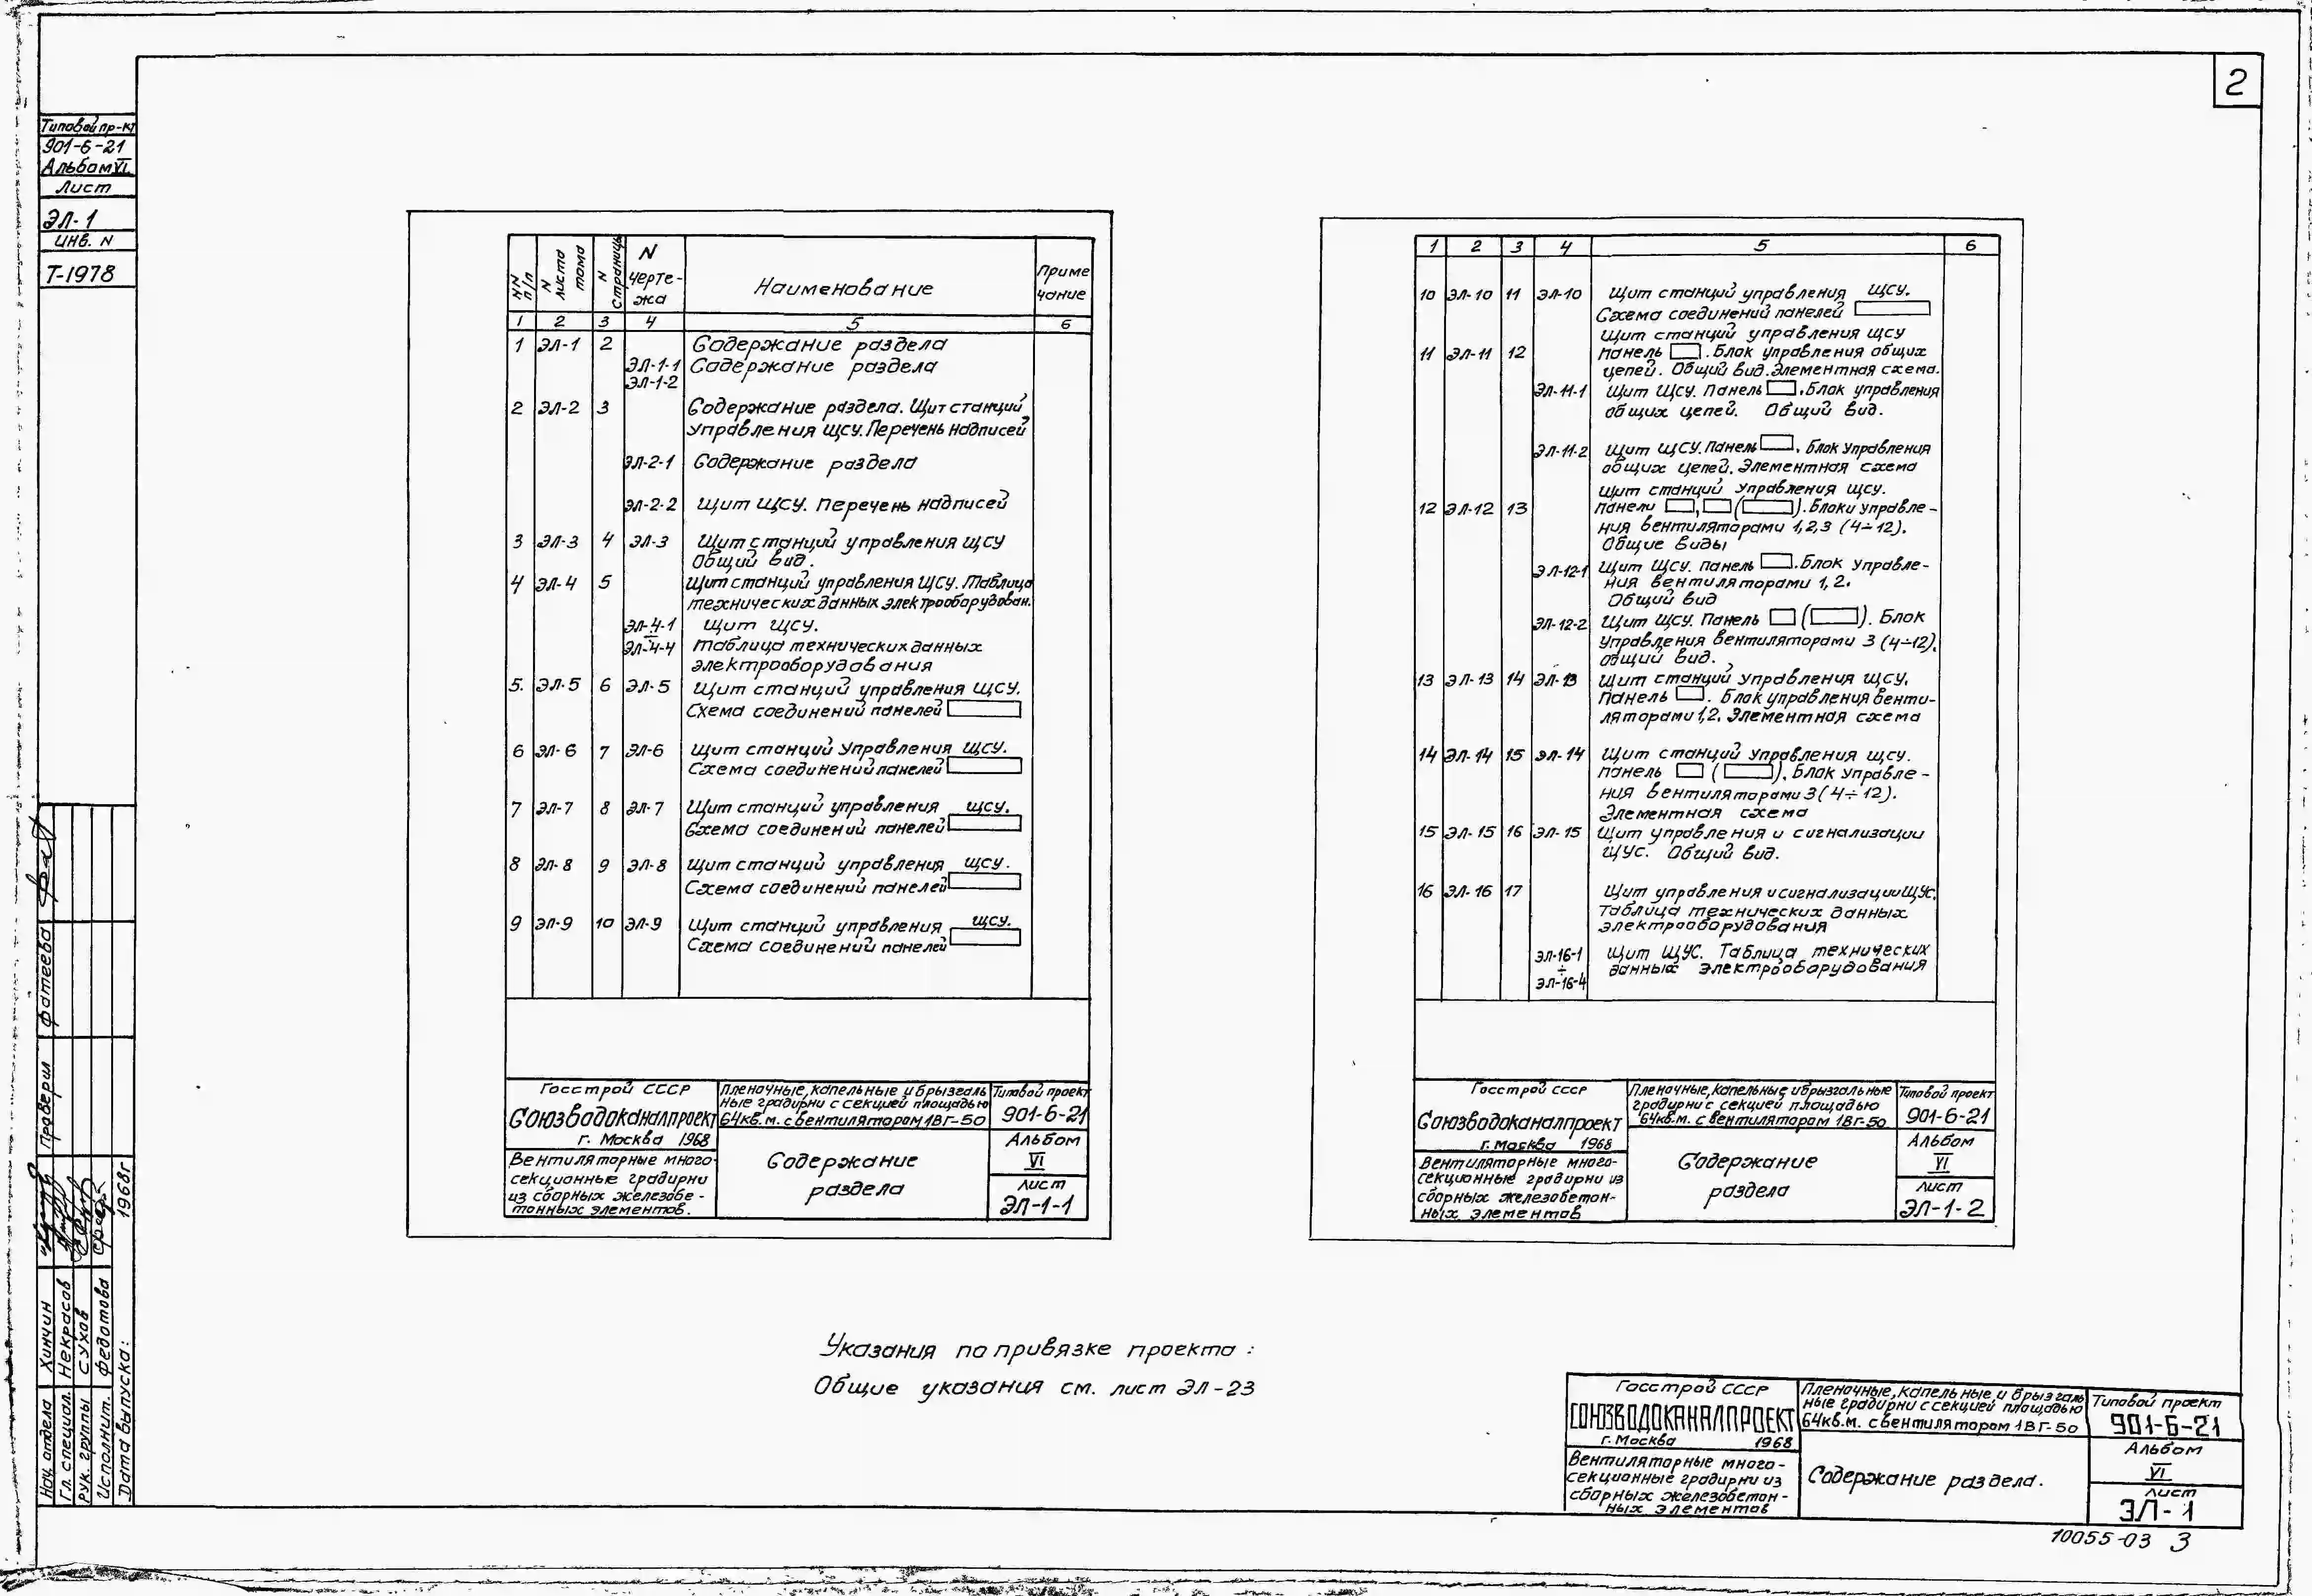 2
Типовой пр-кт
901-6-21
Альбом VI
Лист
ЭЛ-1
Инв. N
Т-1978
NN п/п
N листа тома
N страницы
N чертежа
Наименование
Примечание
1 2 3 4 5 6
1 ЭЛ-1 2 Содержание раздела
ЭЛ-1-1 Содержание раздела
ЭЛ-1-2
2 ЭЛ-2 3 Содержание раздела. Щит станций
управления ЩСУ. Перечень надписей
ЭЛ-2-1 Содержание раздела
ЭЛ-2-2 Щит ЩСУ. Перечень надписей
3 ЭЛ-3 4 ЭЛ-3 Щит станций управления ЩСУ
Общий вид.
4 ЭЛ-4 5 Щит станций управления ЩСУ. Таблица
технических данных электрооборудован.
ЭЛ-4-1 Щит ЩСУ.
÷
ЭЛ-4-4 Таблица технических данных
электрооборудования
5. ЭЛ-5 6 ЭЛ-5 Щит станций управления ЩСУ.
Схема соединений панелей
6 ЭЛ-6 7 ЭЛ-6 Щит станций управления ЩСУ.
Схема соединений панелей
7 ЭЛ-7 8 ЭЛ-7 Щит станций управления ЩСУ.
Схема соединений панелей
8 ЭЛ-8 9 ЭЛ-8 Щит станций управления ЩСУ.
Схема соединений панелей
9 ЭЛ-9 10 ЭЛ-9 Щит станций управления ЩСУ.
Схема соединений панелей
Госстрой СССР
Союзводоканалпроект
г. Москва 1968
Пленочные, капельные и брызгаль
ные градирни с секцией площадью
64кв.м. с вентилятором 1ВГ-50
Типовой проект
901-6-21
Вентиляторные много-
секционные градирни
из сборных железобе-
тонных элементов.
Содержание
раздела
Альбом
VI
Лист
ЭЛ-1-1
1 2 3 4 5 6
10 ЭЛ-10 11 ЭЛ-10 Щит станций управления ЩСУ.
Схема соединений панелей
Щит станций управления ЩСУ
11 ЭЛ-11 12 Панель . Блок управления общих
цепей. Общий вид. Элементная схема.
ЭЛ-11-1 Щит ЩСУ. Панель . Блок управления
общих цепей. Общий вид.
ЭЛ-11-2 Щит ЩСУ. Панель . Блок управления
общих цепей. Элементная схема
Щит станций управления ЩСУ.
12 ЭЛ-12 13 Панели , ( ). Блоки управле-
ния вентиляторами 1,2,3 (4÷12).
Общие виды
ЭЛ-12-1 Щит ЩСУ. Панель . Блок управле-
ния вентиляторами 1,2.
Общий вид
ЭЛ-12-2 Щит ЩСУ. Панель ( ). Блок
управления вентиляторами 3 (4÷12).
Общий вид.
13 ЭЛ-13 14 ЭЛ-13 Щит станций управления ЩСУ.
Панель . Блок управления венти-
ляторами 1,2. Элементная схема
14 ЭЛ-14 15 ЭЛ-14 Щит станций управления ЩСУ.
Панель ( ). Блок управле-
ния вентиляторами 3 (4÷12).
Элементная схема
15 ЭЛ-15 16 ЭЛ-15 Щит управления и сигнализации
ЩУС. Общий вид.
16 ЭЛ-16 17 Щит управления и сигнализации ЩУС.
Таблица технических данных
электрооборудования
ЭЛ-16-1 Щит ЩУС. Таблица технических
÷ данных электрооборудования
ЭЛ-16-4
Госстрой СССР
Союзводоканалпроект
г. Москва 1968
Пленочные, капельные и брызгальные
градирни с секцией площадью
64кв.м. с вентилятором 1ВГ-50
Типовой проект
901-6-21
Вентиляторные много-
секционные градирни из
сборных железобетон-
ных элементов
Содержание
раздела
Альбом
VI
Лист
ЭЛ-1-2
Указания по привязке проекта:
Общие указания см. лист ЭЛ-23
Госстрой СССР
СОЮЗВОДОКАНАЛПРОЕКТ
г. Москва 1968
Пленочные, капельные и брызгаль
ные градирни с секцией площадью
64кв.м. с вентилятором 1ВГ-50
Типовой проект
901-6-21
Вентиляторные много-
секционные градирни из
сборных железобетон-
ных элементов
Содержание раздела.
Альбом
VI
Лист
ЭЛ-1
10055-03 3
Проверил Фатеева
Нач. отдела Хинчин
Гл. специал. Некрасов
Рук. группы Сухов
Исполнит. Федотова
Дата выпуска: 1968г